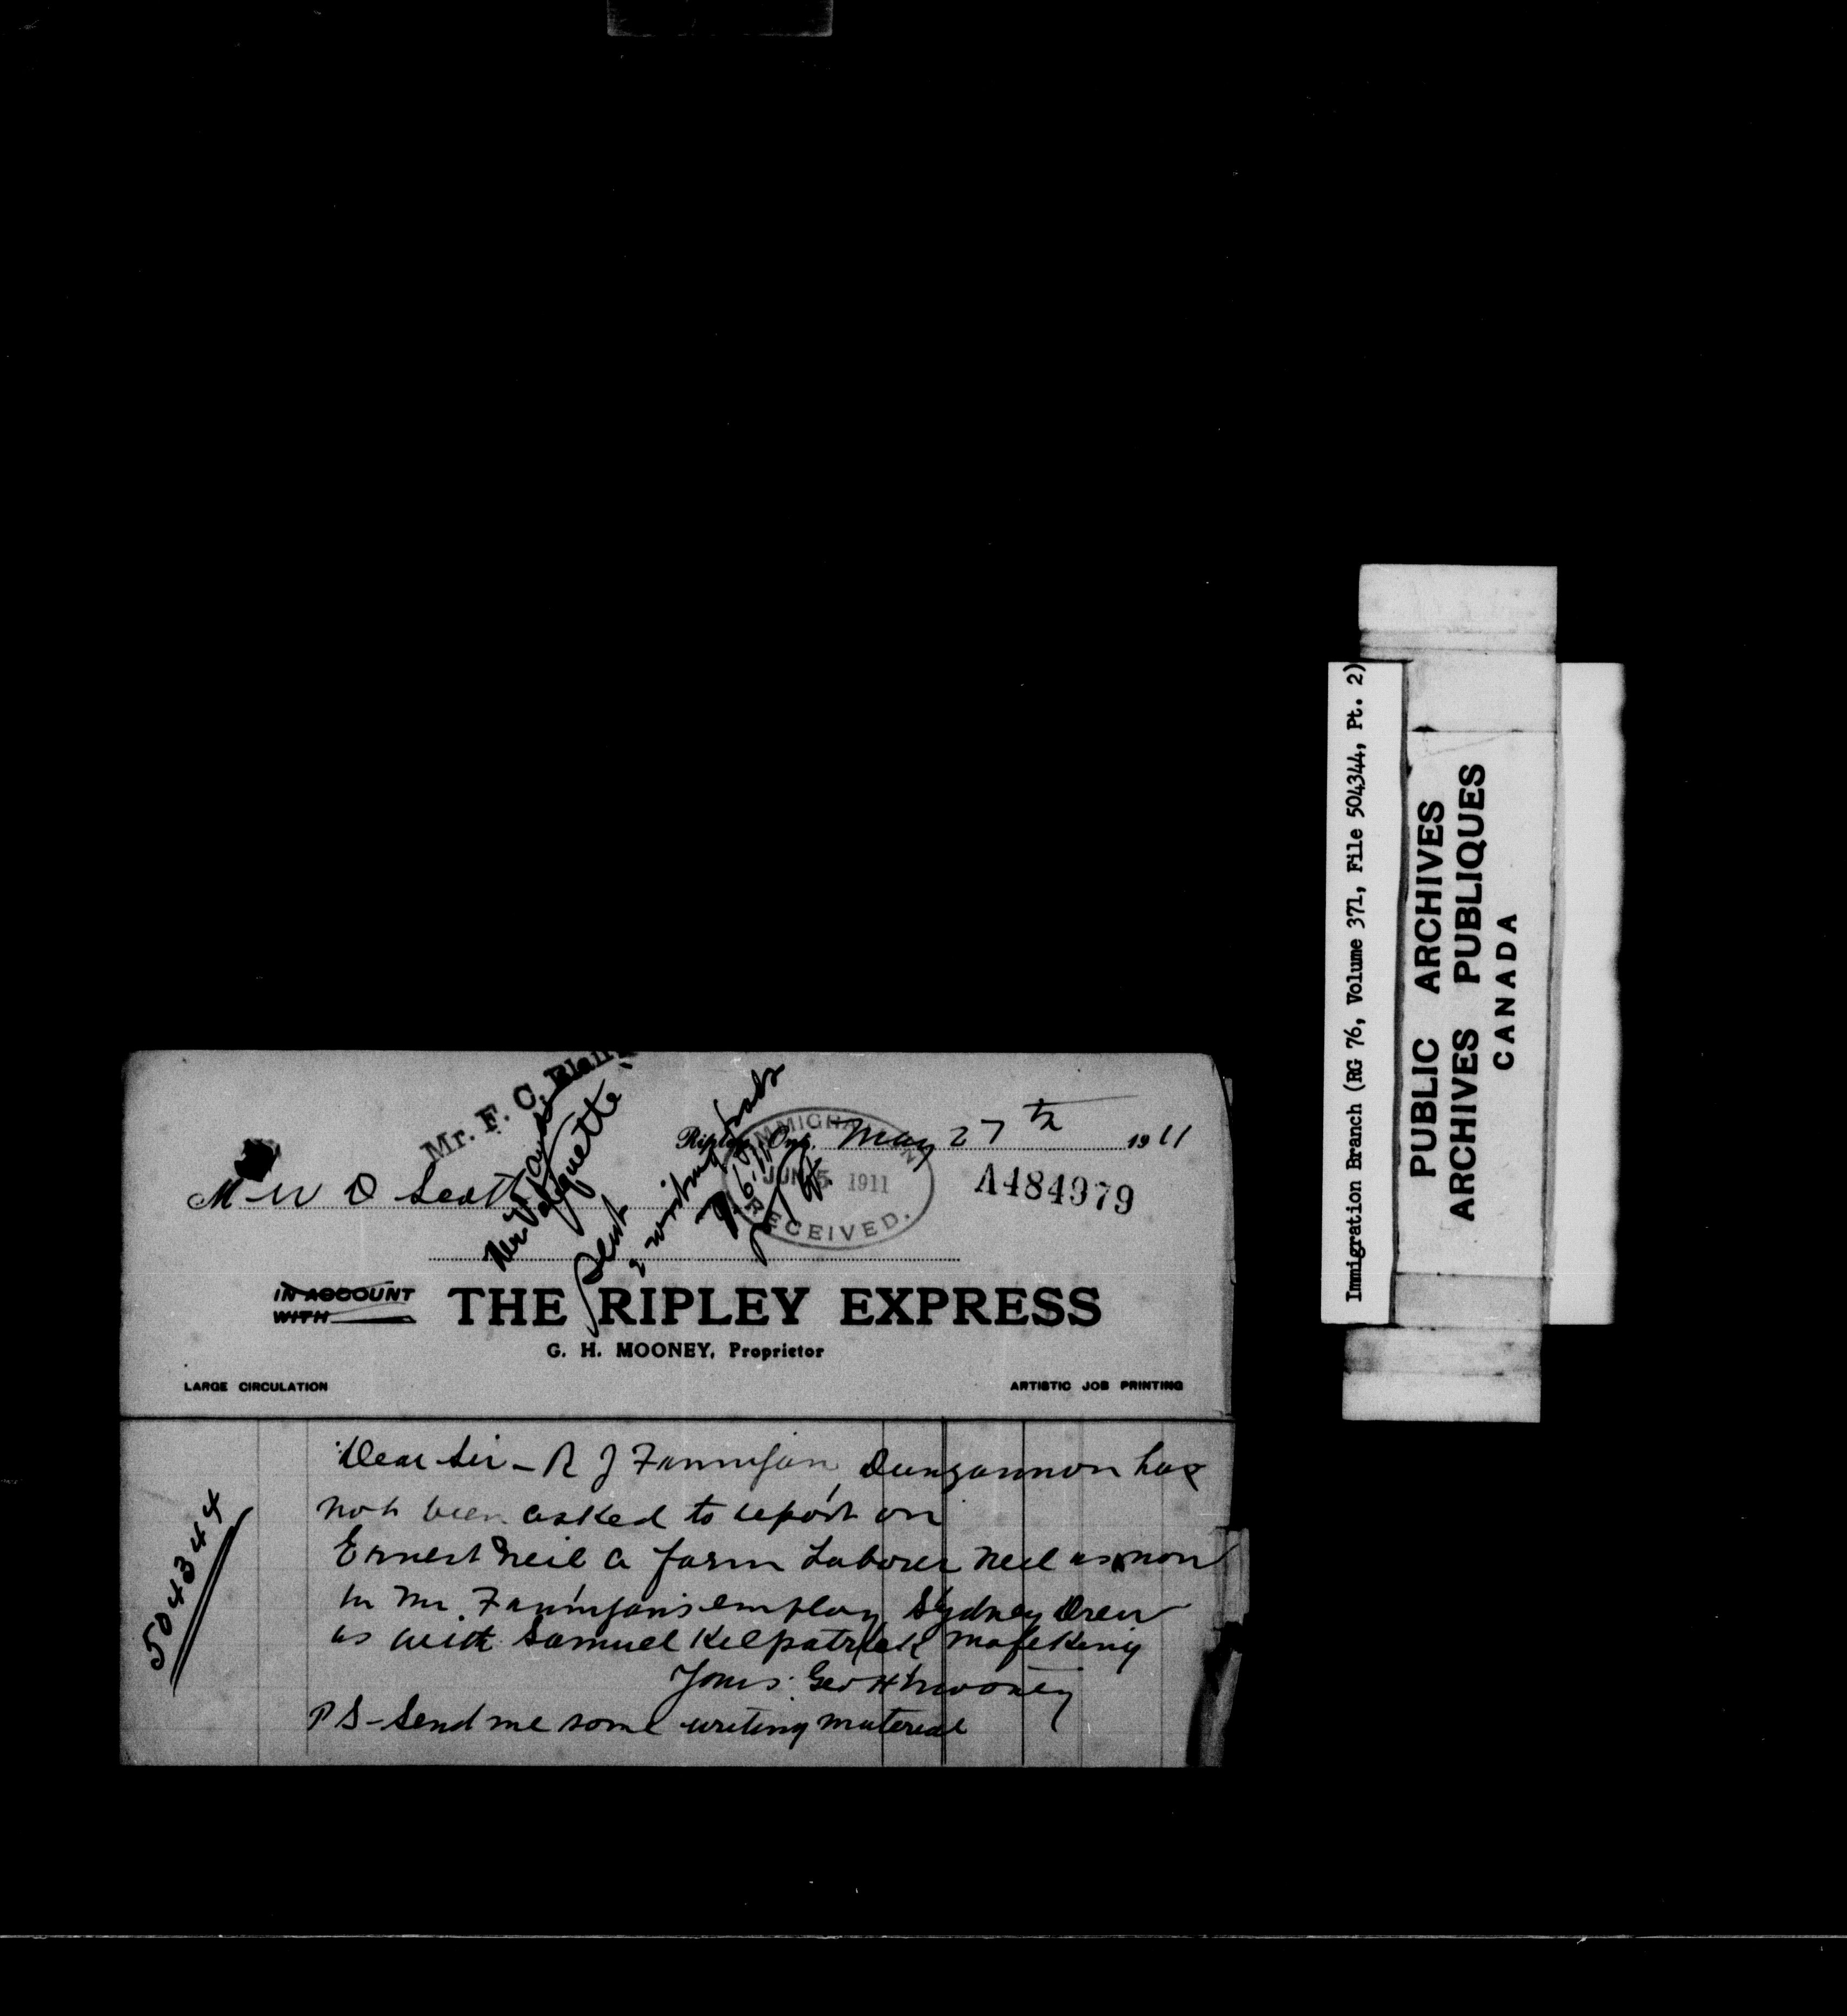 Mr. F. C. Blair
Ripley, Ont. May 27th 1911
IMMIGRATION
JUN 5 1911
RECEIVED.
A484979
M W D Scott
Sent
2 writing pads
IN ACCOUNT
WITH
THE RIPLEY EXPRESS
G. H. MOONEY, Proprietor
LARGE CIRCULATION
ARTISTIC JOB PRINTING
504344
Dear Sir - R J Fannigan, Dungannon has
not been asked to report on
Ernest Neil a farm Laborer Neil is now
in Mr. Fannigan's employ Sydney Drew
is with Samuel Kilpatrick Mafeking
Yours Geo H Mooney
P S - Send me some writing material
Immigration Branch (RG 76, Volume 371, File 504344, Pt. 2)
PUBLIC ARCHIVES
ARCHIVES PUBLIQUES
CANADA